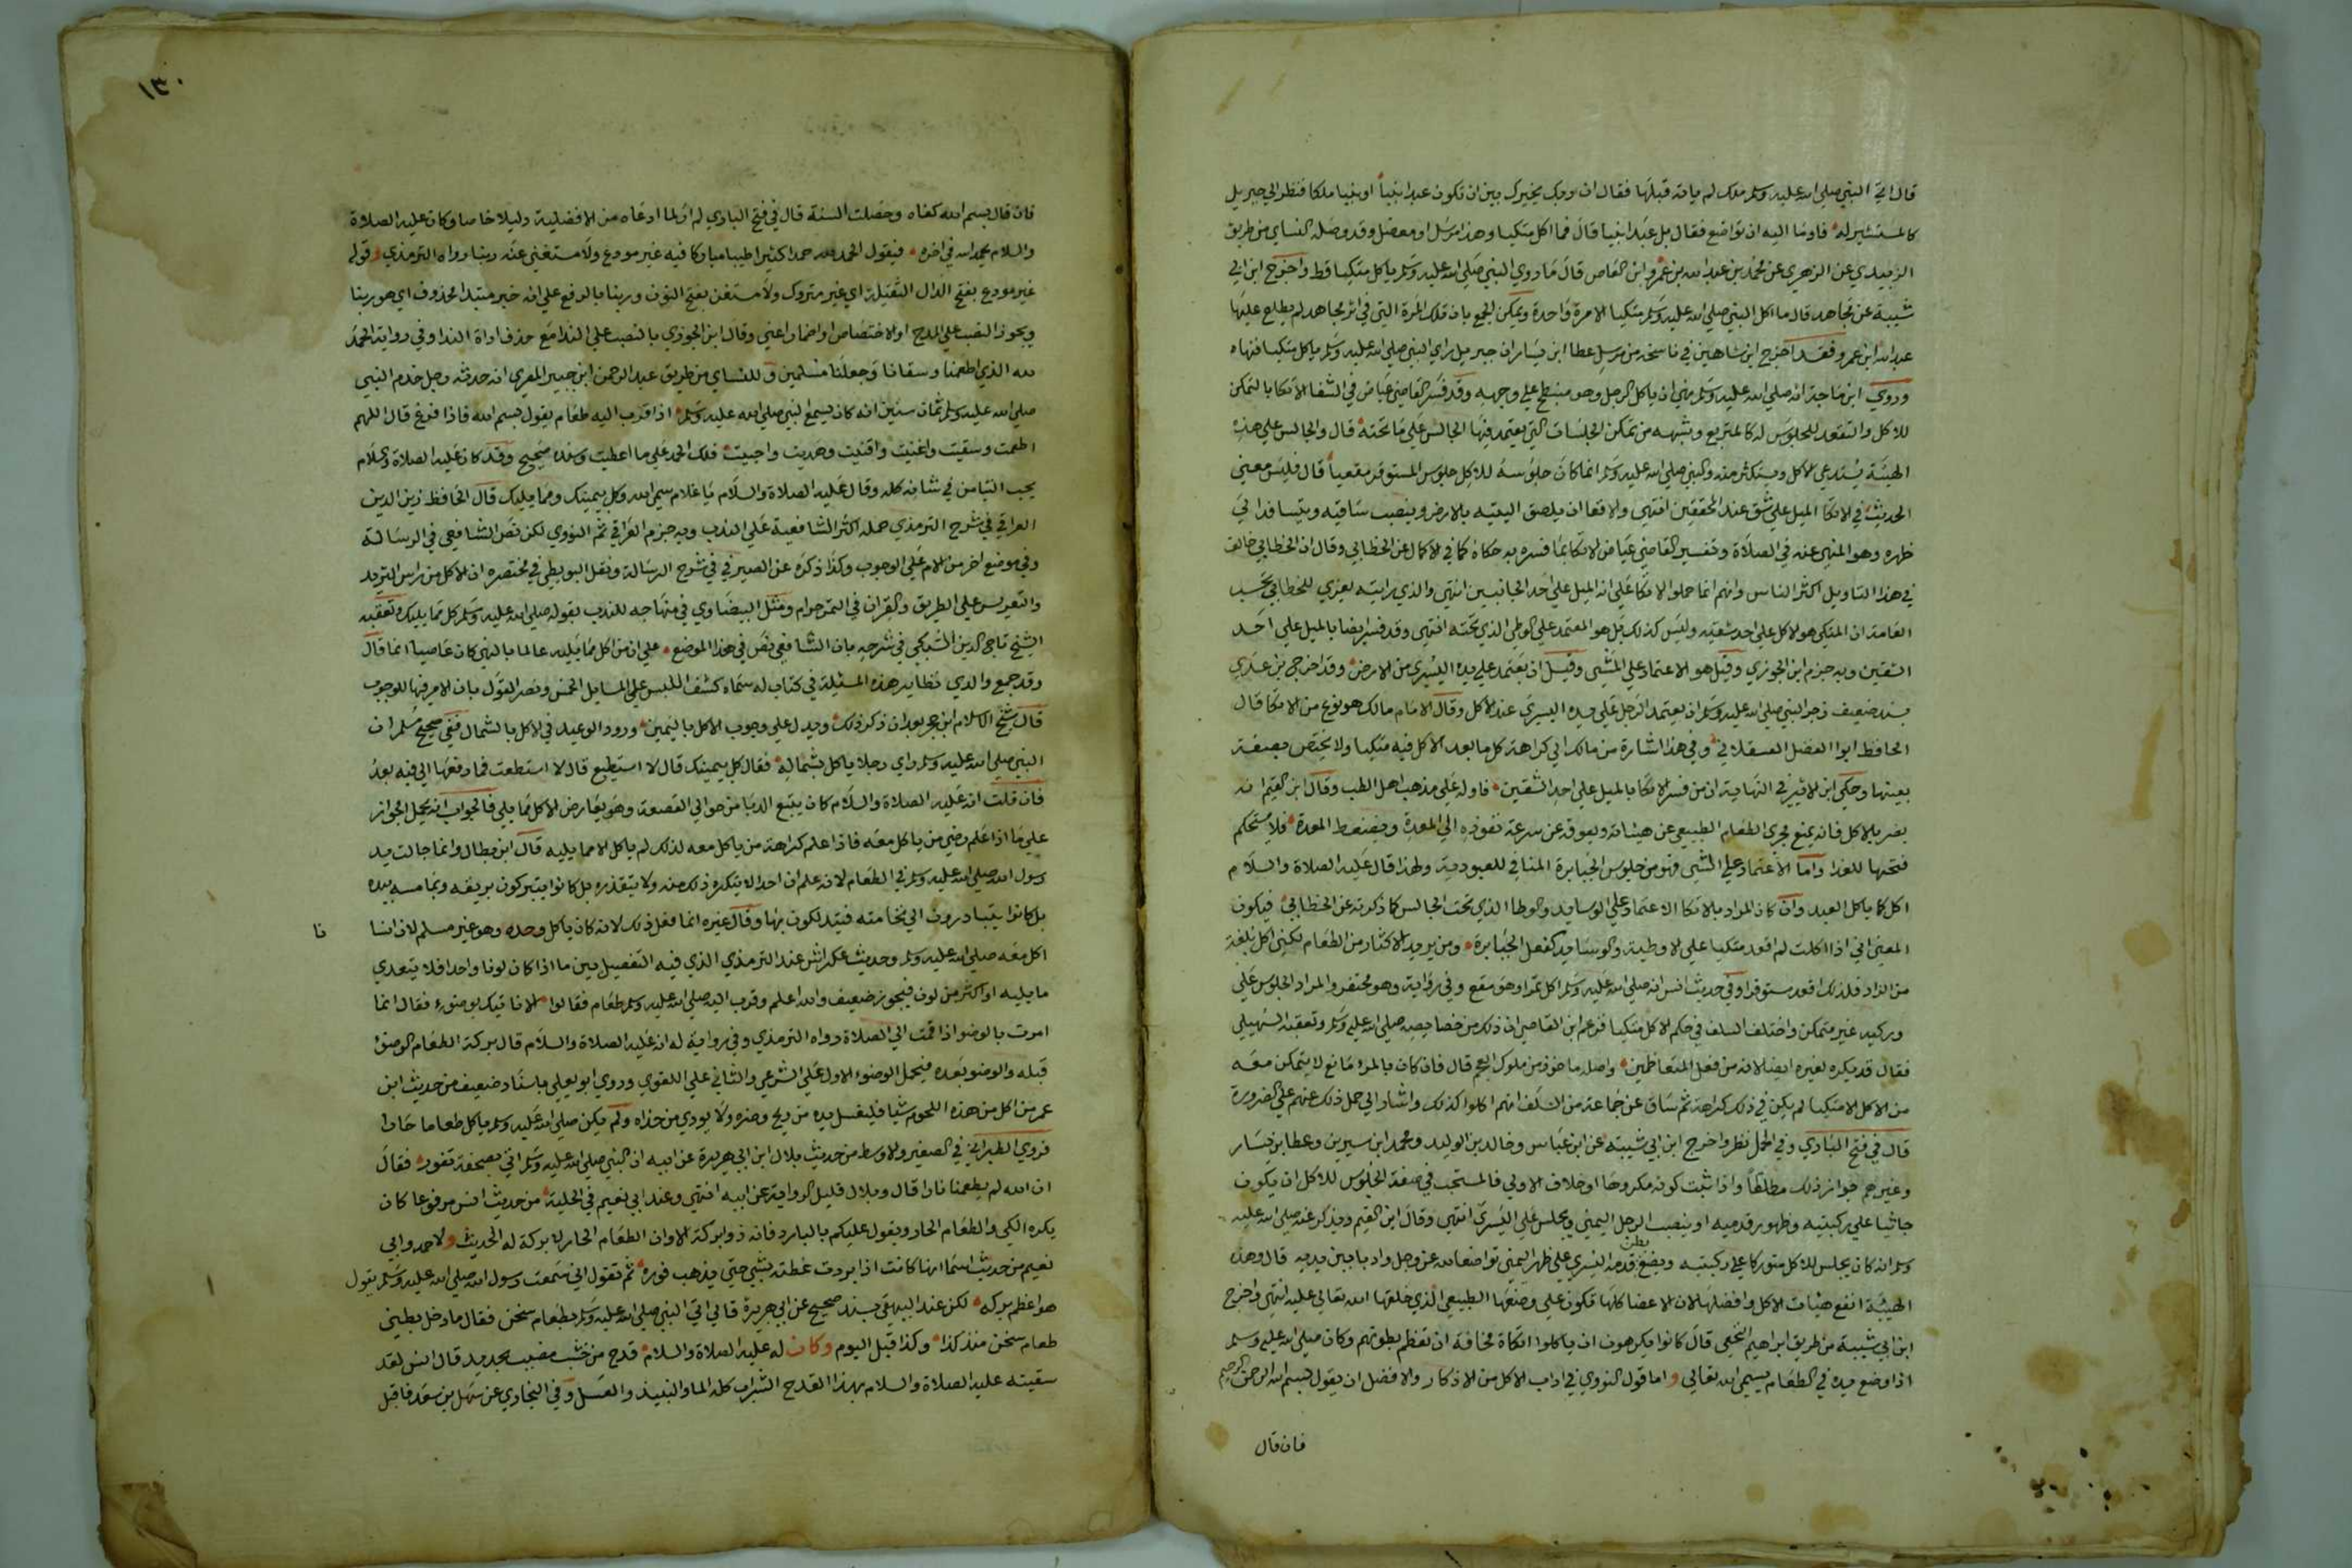 قال اتي النبي صلي الله عليه وسلم ملك لم ياته قبلها فقال ان ربك يخيرك بين ان تكون عبدا نبياً او نبيا ملكا فنظر الي جبريل
كالمستشير له فاوما اليه ان تواضع فقال بل عبدا نبيا قال فما اكل متكيا وهذا مرسل او معضل وقد وصله النساي من طريق
الزبيدي عن الزهري عن محمد بن عبد الله بن عمرو ابن العاص قال ما روي النبي صلي الله عليه وسلم ياكل متكيا قط واخرج ابن ابي
شيبة عن مجاهد قال ما اكل النبي صلي الله عليه وسلم متكيا الا مرة واحدة ويمكن الجمع بان تلك المرة التي في اثر مجاهد لم يطلع عليها
عبد الله ابن عمرو فقد اخرج ابن شاهين في ناسخه من مرسل عطا ابن يسار ان جبريل راي النبي صلي الله عليه وسلم ياكل متكيا فنهاه
وروي ابن ماجة انه صلي الله عليه وسلم نهي ان ياكل الرجل وهو منبطح علي وجهه وقد فسر القاضي عياض في الشفا الاتكا بالتمكن
للاكل والتقعد للجلوس له كالمتربع وشبهه من تمكن الجلسات التي يعتمد فيها الجالس علي ما تحته قال والجالس علي هذه
الهيئة يستدعي الاكل ويستكثر منه والنبي صلي الله عليه وسلم انما كان جلوسه للاكل جلوس المستوفز مقعياً قال فليس معني
الحديث في الاتكا الميل علي شق عند المحققين انتهي والاقعا ان يلصق اليتيه بالارض وينصب ساقيه ويتساند الي
ظهره وهو المنهي عنه في الصلاة وتفسير القاضي عياض الاتكا بما فسره به حكاه كما في الاكمال عن الخطابي وقال ان الخطابي خالف
في هذا التاويل اكثر الناس وانهم انما حملوا الاتكا علي انه الميل علي احد الجانبين انتهي والذي رايته يعزي للخطابي تحسب
العامة ان المتكي هو الاكل علي احد شقيه وليس كذلك بل هو المعتمد علي الوطي الذي تحته انتهي وقد فسر ايضا بالميل علي احد
الشقين وبه جزم ابن الجوزي وقيل هو الاعتماد علي الشي وقيل ان يعتمد علي يده اليسري من الارض وقد اخرج بن عدي
بسند ضعيف زجر النبي صلي الله عليه وسلم ان يعتمد الرجل علي يده اليسري عند الاكل وقال الامام مالك هو نوع من الاتكا قال
الحافظ ابوا الفضل العسقلاني وفي هذا اشارة من مالك الي كراهة كل ما يعد الاكل فيه متكيا ولا يختص بصفة
بعينها وحكي ابن الاثير في النهاية ان من فسر الاتكا بالميل علي احد الشقين فاوله علي مذهب اهل الطب وقال ابن القيم انه
يضر بالاكل فانه يمنع مجري الطعام الطبيعي عن هيئاته ويعوقه عن سرعة نفوذه الي المعدة ويضغط المعدة فلا يستحكم
فتحها للغذا واما الاعتماد علي الشي فهو من جلوس الجبابرة المنافي للعبودية ولهذا قال عليه الصلاة والسلام
اكل كما ياكل العبد وان كان المراد بالاتكا الاعتماد علي الوسايد والوطا الذي تحت الجالس كما ذكرته عن الخطابي فيكون
المعني اني اذا اكلت لم اقعد متكيا علي الاوطية والوسايد كفعل الجبابرة ومن يريد الاكثار من الطعام لكني اكل بلغة
من الزاد فلذلك اقعد مستوفزا وفي حديث انس انه صلي الله عليه وسلم اكل تمرا وهو مقع وفي رواية وهو محتفز والمراد الجلوس علي
وركيه غير متمكن واختلف السلف في حكم الاكل متكيا فزعم ابن القاص ان ذلك من خصايصه صلي الله عليه وسلم وتعقبه السهيلي
فقال قد يكره لغيره ايضا لانه من فعل المتعاظمين واصله ماخوذ من ملوك العجم قال فان كان بالمرء مانع لا يتمكن معه
من الاكل الا متكيا لم يكن في ذلك كراهة ثم ساق عن جماعة من السلف انهم اكلوا كذلك واشار الي حمل ذلك عنهم علي الضرورة
قال في فتح الباري وفي الحمل نظر واخرج ابن ابي شيبة عن ابن عباس وخالد بن الوليد ومحمد ابن سيرين وعطا بن يسار
وغيرهم جواز ذلك مطلقاً واذا ثبت كونه مكروها او خلاف الاولي فالمستحب في صفة الجلوس للاكل ان يكون
جاثيا علي ركبتيه وظهور قدميه او ينصب الرجل اليمني ويجلس علي اليسري انتهي وقال ابن القيم ويذكر عنه صلي الله عليه
وسلم انه كان يجلس للاكل متوركا علي ركبتيه ويضع بطن قدمه اليسري علي ظهر اليمني تواضعا لله عز وجل وادبا بين يديه قال وهذه
الهيئة انفع هيئات الاكل وافضلها لان الاعضا كلها تكون علي وضعها الطبيعي الذي خلقها الله تعالي عليه انتهي واخرج
ابن ابي شيبة من طريق ابراهيم النخعي قال كانوا يكرهون ان ياكلوا اتكاة مخافة ان تعظم بطونهم وكان صلي الله عليه وسلم
اذا وضع يده في الطعام يسمي الله تعالي واما قول النووي في اداب الاكل من الاذكار والافضل ان يقول بسم الله الرحمن الرحيم
فان قال
١٣٠
فان قال بسم الله كفاه وحصلت السنة قال في فتح الباري لم ار لما ادعاه من الافضلية دليلا خاصا وكان عليه الصلاة
والسلام يحمد الله في اخره فيقول الحمد لله حمدا كثيرا طيبا مباركا فيه غير مودع ولا مستغني عنه ربنا رواه الترمذي وقوله
غير مودع بفتح الدال الثقيلة اي غير متروك ولا مستغن بفتح النون وربنا بالرفع علي انه خبر مبتدا محذوف اي هو ربنا
ويجوز النصب علي المدح او الاختصاص او اضمار اعني وقال ابن الجوزي بالنصب علي الندا مع حذف اداة الندا وفي رواية الحمد
لله الذي اطعمنا وسقانا وجعلنا مسلمين وللنساي من طريق عبد الرحمن ابن جبير المصري انه حدثه رجل خدم النبي
صلي الله عليه وسلم ثمان سنين انه كان يسمع النبي صلي الله عليه وسلم اذا قرب اليه طعام يقول بسم الله فاذا فرغ قال اللهم
اطعمت وسقيت واغنيت واقنيت وهديت واحييت فلك الحمد علي ما اعطيت وسنده صحيح وقد كان عليه الصلاة والسلام
يحب التيامن في شانه كله وقال عليه الصلاة والسلام يا غلام سم الله وكل بيمينك ومما يليك قال الحافظ زين الدين
العراقي في شرح الترمذي حمله اكثر الشافعية علي الندب وبه جزم الغزالي ثم النووي لكن نص الشافعي في الرسالة
وفي موضع اخر من الام علي الوجوب وكذا ذكره عن الصيرفي في شرح الرسالة ونقل البويطي في مختصره ان الاكل من راس الثريد
والتعريس علي الطريق والقران في التمر حرام ومثل البيضاوي في منهاجه للندب بقوله صلي الله عليه وسلم كل مما يليك وتعقبه
الشيخ تاج الدين السبكي في شرحه بان الشافعي نص في هذا الموضع علي ان من اكل مما يليه عالما بالنهي كان عاصيا انما قال
وقد جمع والدي نظاير هذه المسئلة في كتاب له سماه كشف اللبس علي المسايل الخمس ونصر القول بان الامر فيها للوجوب
قال شيخ الاسلام ابن حجر بعد ان ذكر ذلك ويدل علي وجوب الاكل باليمين ورود الوعيد في الاكل بالشمال ففي صحيح مسلم ان
النبي صلي الله عليه وسلم راي رجلا ياكل بشماله فقال كل بيمينك قال لا استطيع قال لا استطعت فما رفعها الي فيه بعد
فان قلت انه عليه الصلاة والسلام كان يتبع الدبا من حوالي القصعة وهو يعارض الاكل مما يلي فالجواب انه يحمل الجواز
علي ما اذا علم رضي من ياكل معه فاذا علم كراهة من ياكل معه لذلك لم ياكل الا مما يليه قال ابن بطال وانما جالت يد
رسول الله صلي الله عليه وسلم في الطعام لانه علم ان احدا لا يتكره ذلك منه ولا يتقذره بل كانوا يتبركون بريقه وبما مسه بيده
بل كانوا يتبادرون الي نخامته فيتدلكون بها وقال غيره انما فعل ذلك لانه كان ياكل وحده وهو غير مسلم لان انسا
فا
اكل معه صلي الله عليه وسلم وحديث عكراش عند الترمذي الذي فيه التفصيل بين ما اذا كان لونا واحدا فلا يتعدي
ما يليه او اكثر من لون فيجوز ضعيف والله اعلم وقرب اليه صلي الله عليه وسلم طعام فقالوا الا ناتيك بوضوء فقال انما
امرت بالوضو اذا قمت الي الصلاة رواه الترمذي وفي رواية له انه عليه الصلاة والسلام قال بركة الطعام الوضوء
قبله والوضو بعده فيحمل الوضوء الاول علي الشرعي والثاني علي اللغوي وروي ابو يعلي باسناد ضعيف من حديث ابن
عمر من اكل من هذه اللحوم شيا فليغسل يده من ريح وضره ولا يوذي من حذاه ولم يكن صلي الله عليه وسلم ياكل طعاما حارا
فروي الطبراني في الصغير والاوسط من حديث بلال ابن ابي هريرة عن ابيه ان النبي صلي الله عليه وسلم اتي بصحفة تفور فقال
ان الله لم يطعمنا نارا قال وبلال قليل الرواية عن ابيه انتهي وعند ابي نعيم في الحلية من حديث انس مرفوعا كان
يكره الكي والطعام الحار ويقول عليكم بالبارد فانه ذو بركة الا وان الطعام الحار لا بركة له الحديث ولاحمد وابي
نعيم من حديث اسما انها كانت اذا بردت غطته بشي حتي يذهب فوره ثم تقول اني سمعت رسول الله صلي الله عليه وسلم يقول
هو اعظم بركه لكن عند البيهقي بسند صحيح عن ابي هريرة قال اتي النبي صلي الله عليه وسلم بطعام سخن فقال ما دخل بطني
طعام سخن منذ كذا وكذا قبل اليوم وكان له عليه الصلاة والسلام قدح من خشب مضبب بحديد قال انس لقد
سقيته عليه الصلاة والسلام بهذا القدح الشراب كله الما والنبيذ والعسل وفي البخاري عن سهل بن سعد فاقبل